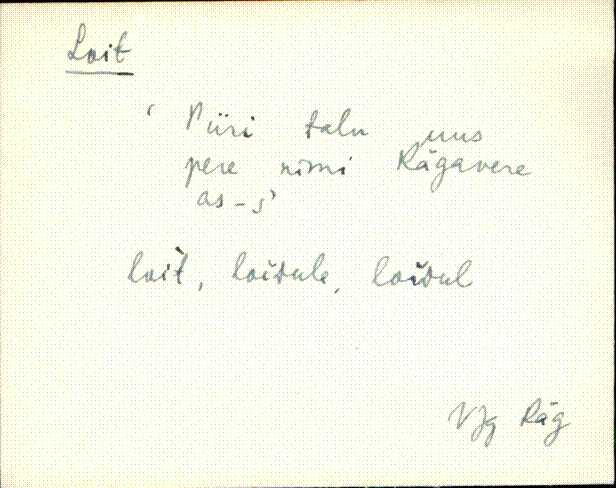 Loit
‘ Piiri talu uus
pere nimi Rägavere
as-s’
loìt, loidule, loidul
VJg Räg